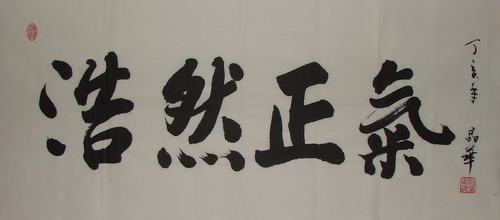 浩然正氣
丁亥年 晶華